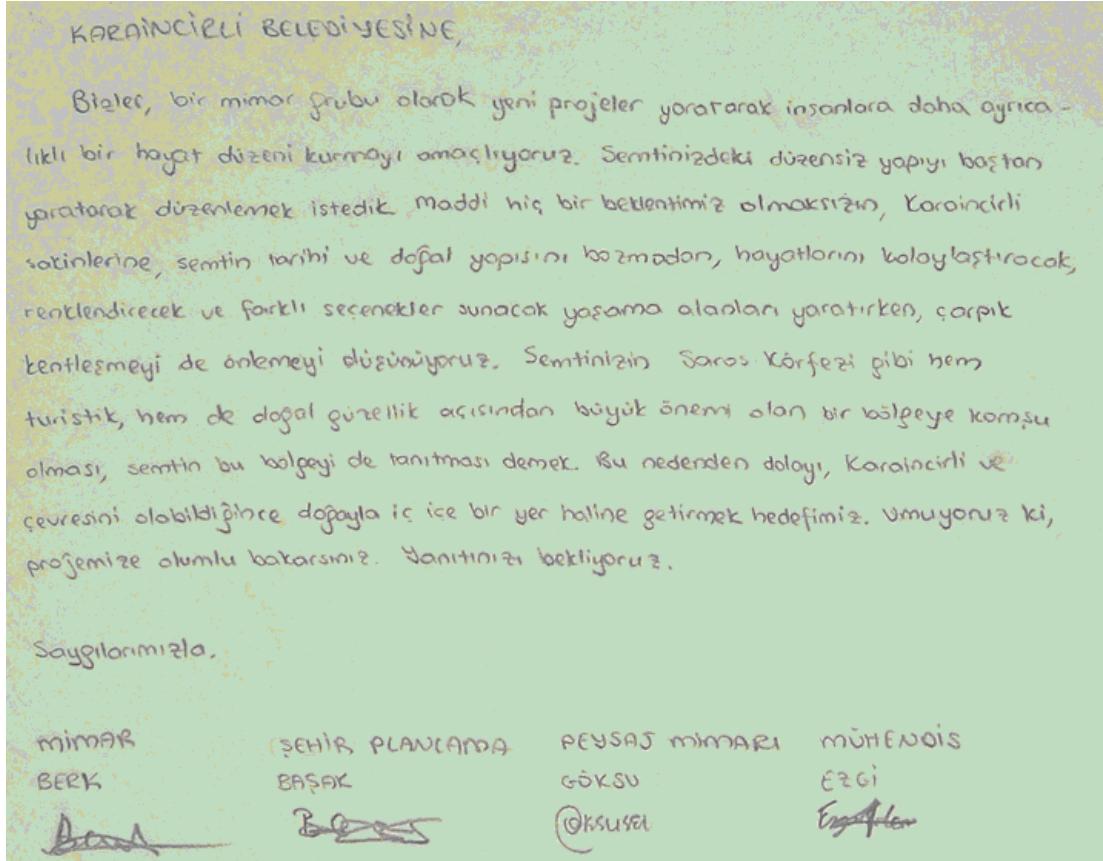 KARAİNCİRLİ BELEDİYESİNE,
Bizler, bir mimar grubu olarak yeni projeler yaratarak insanlara daha ayrıca-
lıklı bir hayat düzeni kurmayı amaçlıyoruz. Semtinizdeki düzensiz yapıyı baştan
yaratarak düzenlemek istedik maddi hiç bir beklentimiz olmaksızın, Karaincirli
sakinlerine, semtin tarihi ve doğal yapısını bozmadan, hayatlarını kolaylaştıracak,
renklendirecek ve farklı seçenekler sunacak yaşama alanları yaratırken, çarpık
kentleşmeyi de önlemeyi düşünüyoruz. Semtinizin Saros Körfezi gibi hem
turistik, hem de doğal güzellik açısından büyük önemi olan bir bölgeye komşu
olması, semtin bu bölgeyi de tanıtması demek. Bu nedenden dolayı, Karaincirli ve
çevresini olabildiğince doğayla iç içe bir yer haline getirmek hedefimiz. Umuyoruz ki,
projemize olumlu bakarsınız. Yanıtınızı bekliyoruz.
Saygılarımızla.
MİMAR ŞEHİR PLANLAMA PEYSAJ MİMARI MÜHENDİS
BERK BAŞAK GÖKSU EZGİ